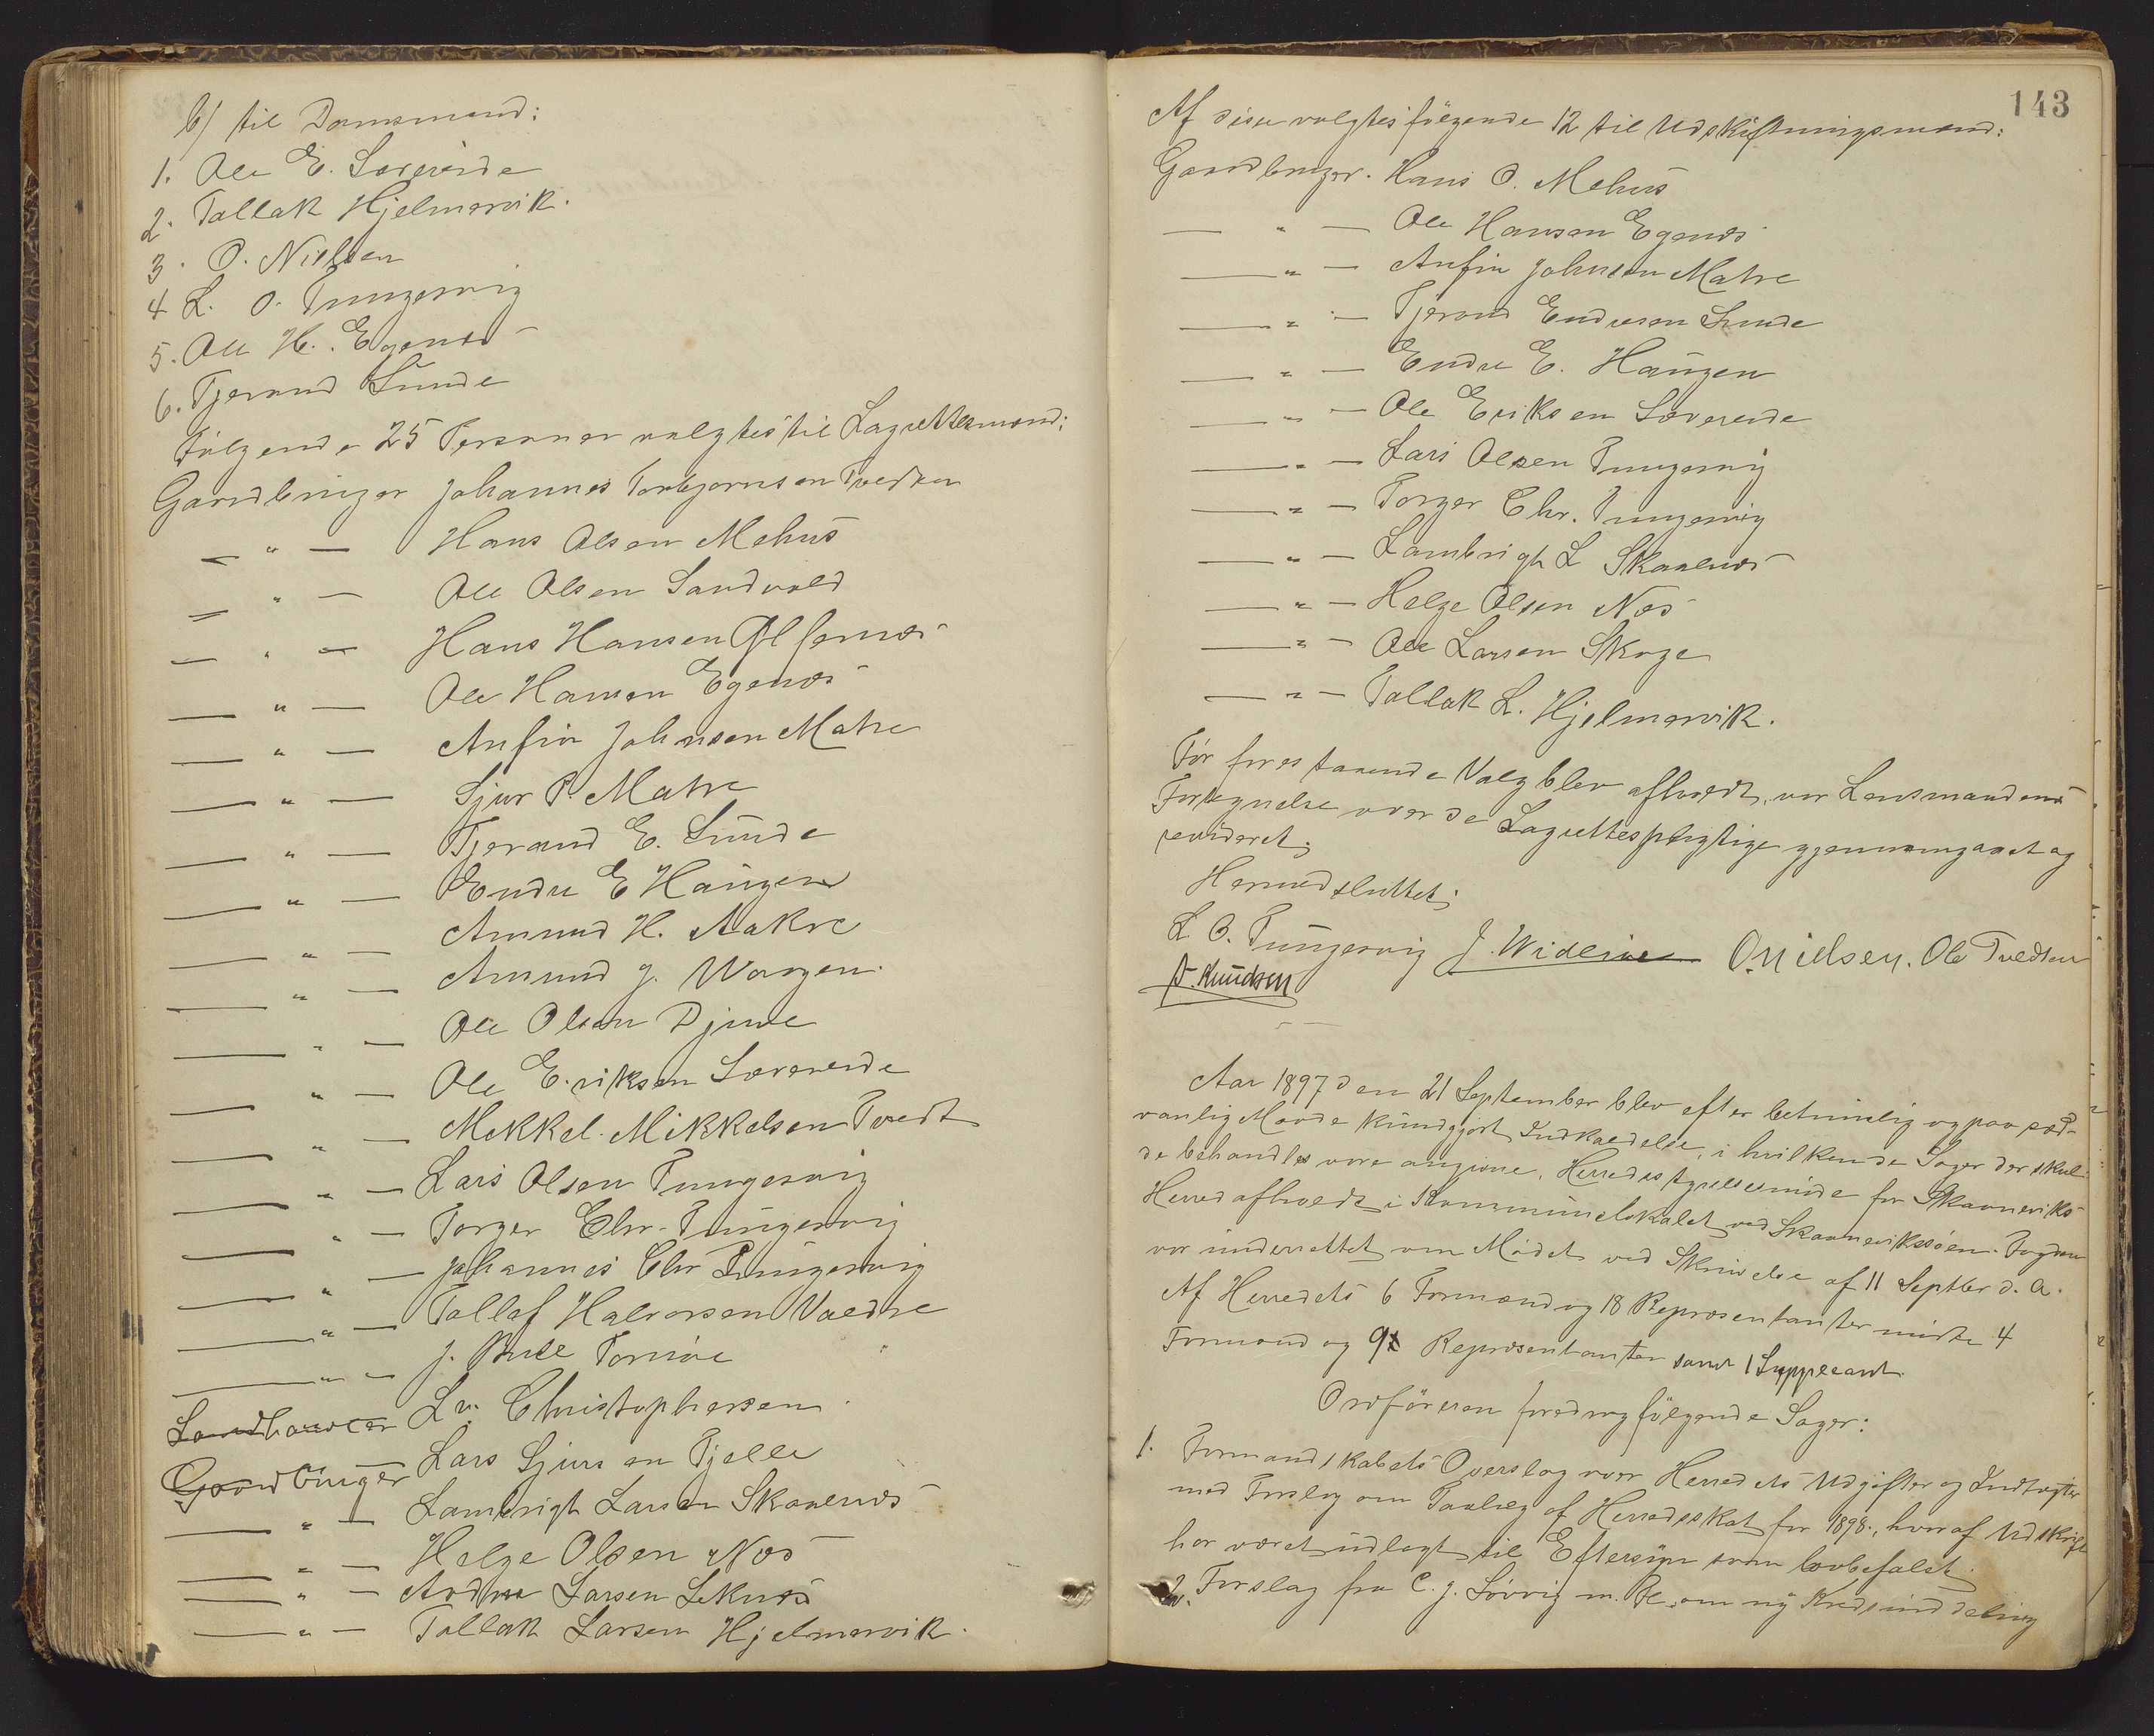 b/ til Domsmænd:
1. Ole E. Sævereide
2. Tallak Hjelmervik.
3. O. Nielsen
4 L. O. Tungesvig
5. Ole H. Egenæs
6. Tjerand Sunde
Følgende 25 Personer valgtes til Lagrettesmænd:
Gaardbruger Johannes Torbjørnsen Tvedten
— " — Hans Olsen Mehus
— " — Ole Olsen Sandvold
— " — Hans Hansen Alsernæs
— " — Ole Hansen Egenæs
— " — Anfin Johnsen Matre
— " — Sjur P. Matre
— " — Tjerand E. Sunde
— " — Endre E Haugen
— " — Amund H. Aakre
— " — Amund J. Wongen.
— " — Ole Olsen Djuve
— " — Ole Eriksen Sævereide
— " — Mekkel. Mikkelsen Tvedt
— " — Lars Olsen Tungesvig
— " — Torger Chr. Tungesvig
— " — Johannes Chr Tungesvig
— " — Tallef Halvorsen Valdre
— " — J. Bull Tornøe
Landhandler L. Christophersen
Gaardbruger Lars Sjursen Fjelle
— " — Lambrigt Larsen Skaalnæs
— " — Helge Olsen Næs
— " — Larsen Leknæs
— " — Tallak Larsen Hjelmervik.
143
Af disse valgtes følgende 12 til Udskiftningsmænd:
Gaardbruger. Hans O. Mehus
— " — Ole Hansen Egenæs
— " — Anfin Johnsen Matre
— " — Tjerand Endresen Sunde
— " — Endre E. Haugen
— " — Ole Eriksen Sævereide
— " — Lars Olsen Tungesvig
— " — Torger Chr. Tungesvig
— " — Lambrigt L Skaalnæs
— " — Helge Olsen Næs
— " — Ole Larsen Skoge
— " — Tallak L. Hjelmervik.
Før forestaaende Valg blev afholdt, var Lensmandens
Fortegnelse over de Lagrettespligtige gjennemgaaet og
revideret.
Hermed sluttet.
L O. Tungesvig J. O. Nielsen. Ole Tvedten
A. Knudsen
Aar 1897 den 21 September blev efter betimelig og paa sæd-
vanlig Maade kundgjort Indkaldelse, i hvilken de Sager der skul-
de behandles vare angivne, Herredsstyrelsesmøde for Skaaneviks
Herred afholdt i Kommunelokalet ved Skaanevikssøen. Fogden
var underrettet om Mødet ved Skrivelse af 11 Septbr d. A.
Af Herredets 6 Formænd og 18 Repræsentanter mødte 4
Formænd og 9 Repræsentanter samt 1 Suppleant.
Ordføreren foredrog følgende Sager:
1. Formandskabets Overslag over Herredets Udgifter og Indtægter
med Forslag om Paalæg af Herredsskat for 1898, hvoraf Udskrift
har været udlagt til Eftersyn som lovbefalet.
2. Forslag fra C. J. Løvvig m. fl. om ny Kredsinddeling